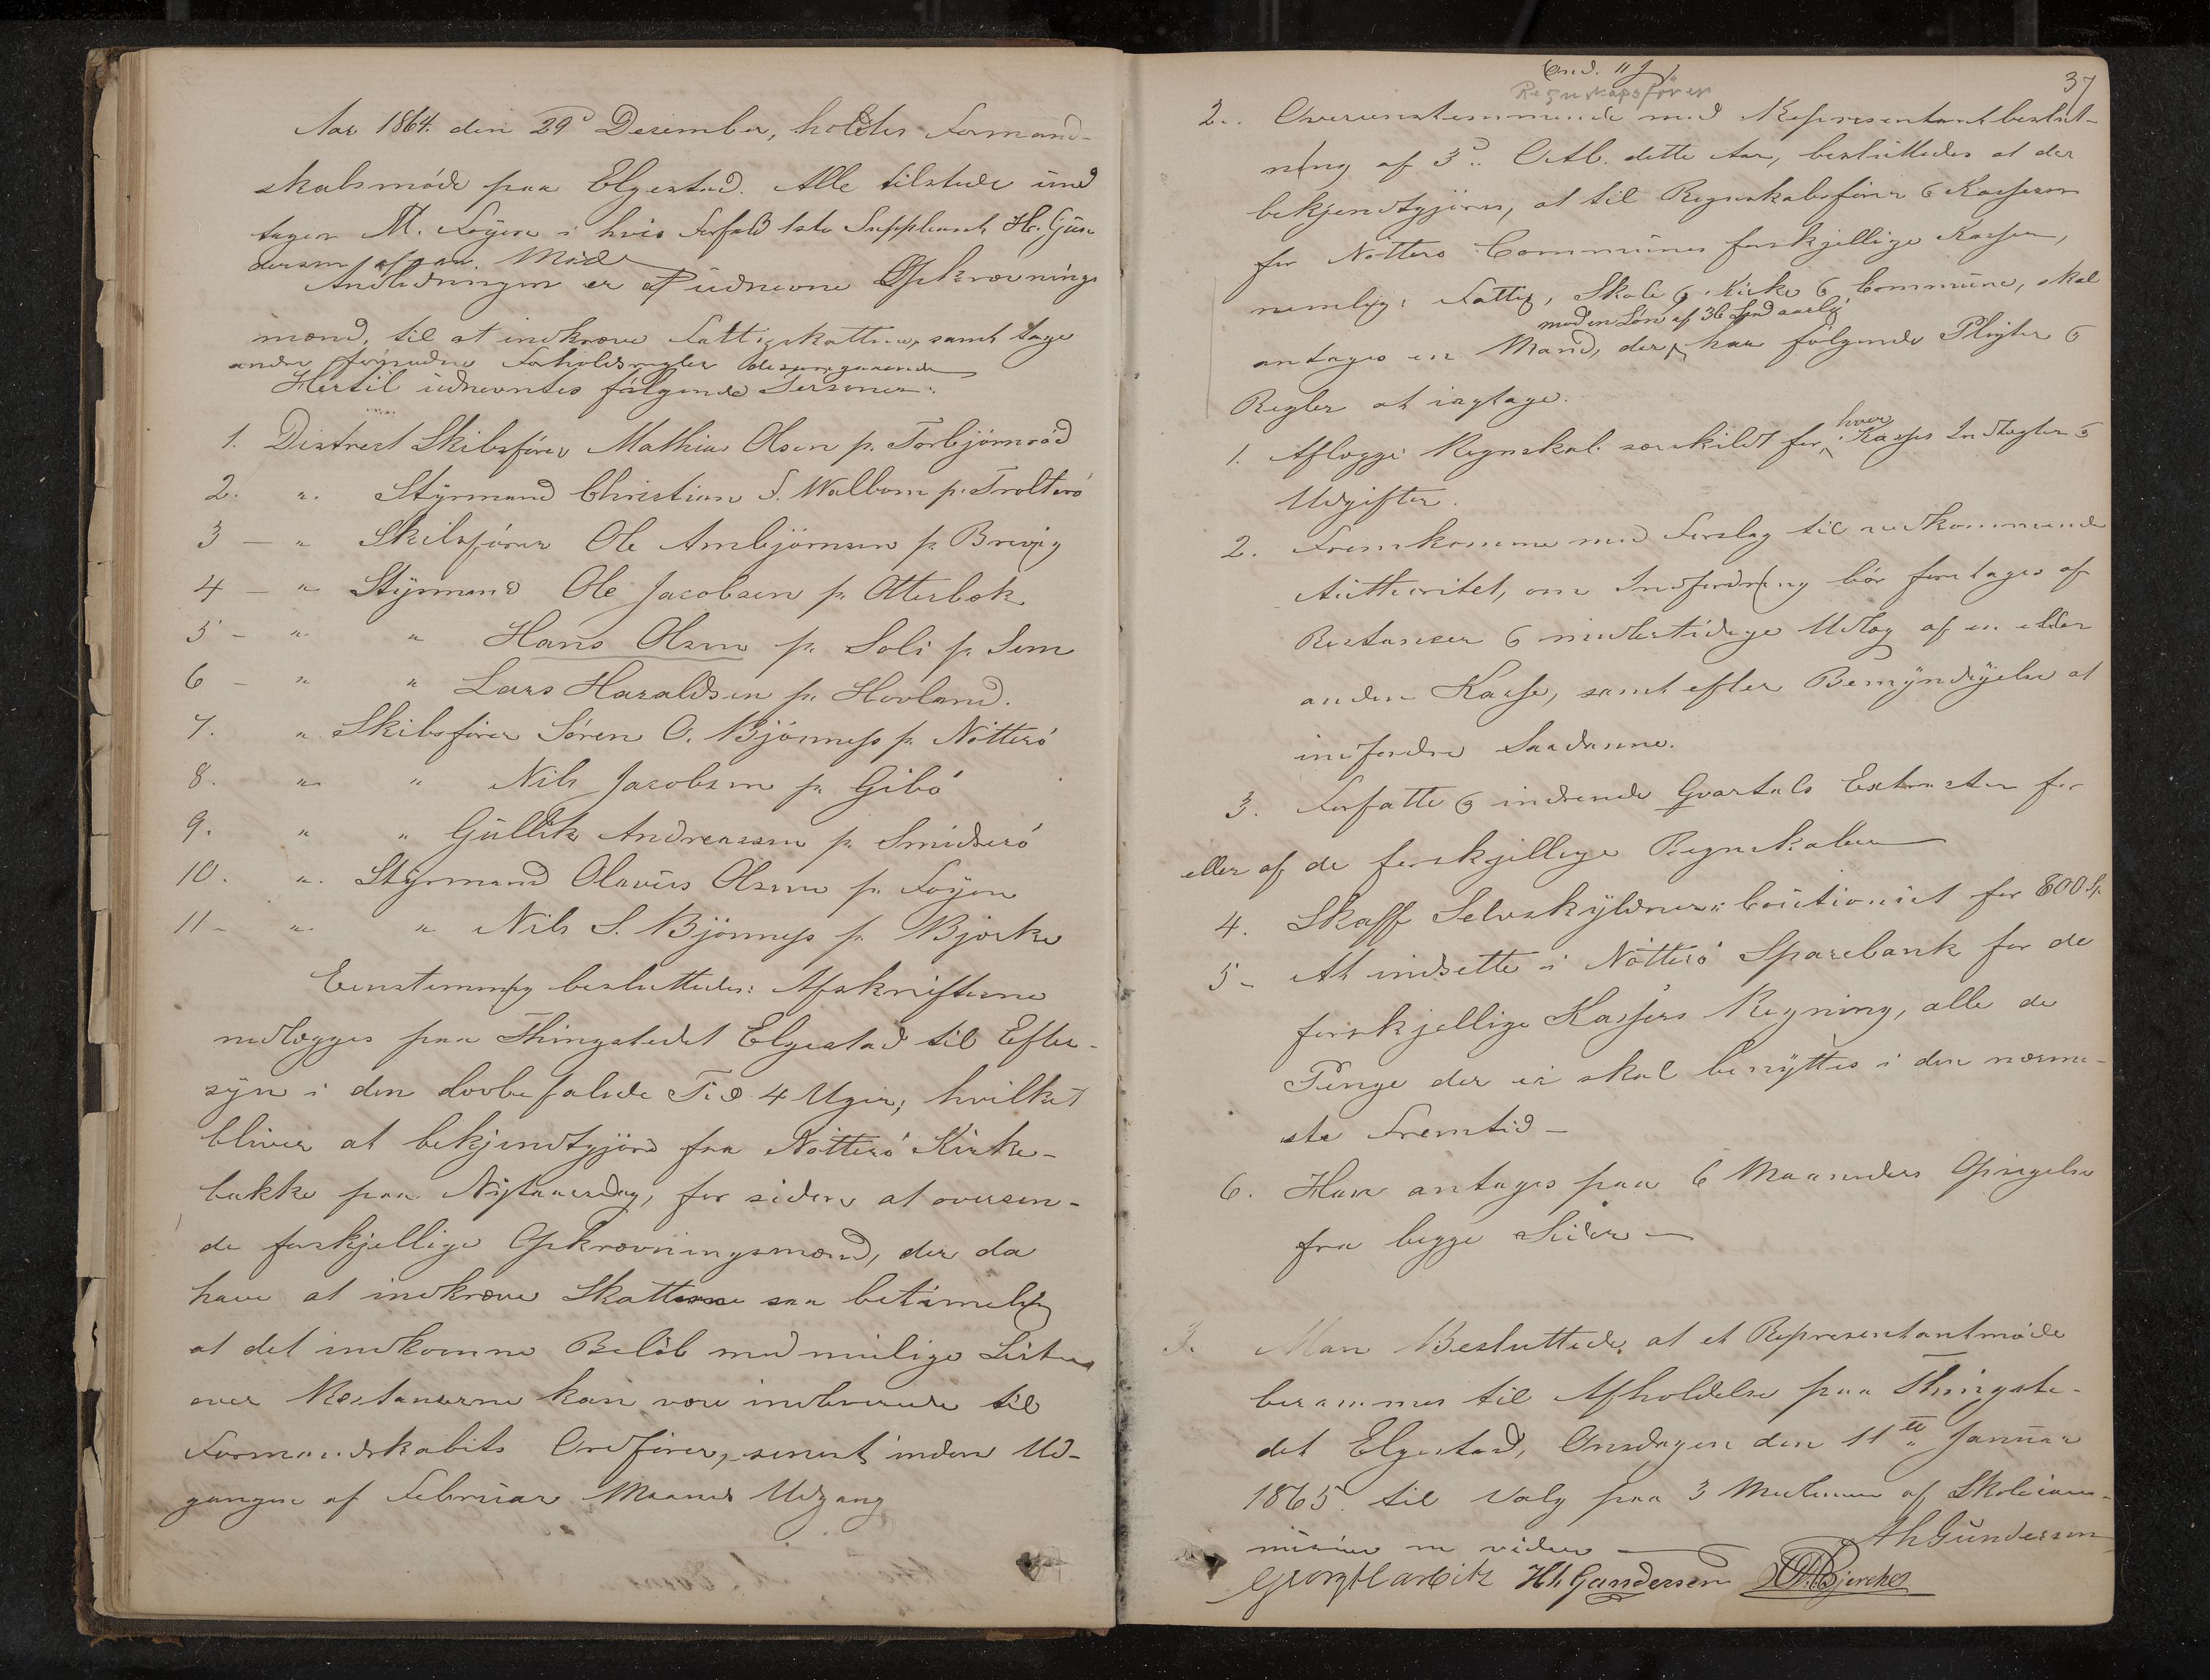 Aar 1864. den 29d Desember, holdtes Formand-
skabsmöde paa Elgestad. Alle tilstede und
tagen M. Föyen i hvis Forfald 1ste Suppleant H. Gun
dersen Möde
Anledningen er at udnevne Opkrævnings
mænd, til at indkræve Fattigskatten, samt tage
andre fornødne Forholdsregler
Hertil udnevntes fölgende Personer:
1. Distrect Skibsförer Mathias Olsen p. Torbjörnröd
2. " Styrmand Christian F. Wallom p. Trolterö
3 — " Skibsförer Ole Ambjörnsen p. Brevig
4 — " Styrmand Ole Jacobsen p. Otterbek
5 — " " Hans Olsen p. Soli p. Sem
6 — " " Lars Haraldsen p. Hovland.
7. " Skibsförer Sören O. Bjönness p. Nötterö
8. " " Nils Jacobsen p. Gibö
9. " " Gullik Andreassen p. Smidserö
10. " Styrmand Olavus Olsen p. Föyen
11 — " " Nils S. Bjönness p. Bjerke
Eenstemmig besluttedes: Afskrifterne
nedlægges paa Thingstedet Elgestad til Efter-
syn i den lovbefalede Tid 4 Uger, hvilket
bliver at bekjendtgjöre fra Nötterö Kirke-
bakke paa Nytaarsdag, for siden at oversen-
de forskjellige Opkrævningsmænd, der da
have at indkræve Skatterne saa betimelig
at det indkomne Belöb med mulige Lister
over Restanserne kan være indleverede til
Formandskabets Ordförer, senest inden Ud-
gangen af Februar Maaneds Udgang
37
Regnskapsförer
2. Overeensstemmende med Representantbeslut-
ning af 3d Octb. dette Aar, besluttedes at der
bekjendtgjöres, at til Regnskabsförer & Kasserer
for Nötterö Communes forskjellige Kasser,
nemlig: Fattig, Skole & Kirke & Commune, skal
med en Lön af 36 Spd aarlig
antages en Mand, der har fölgende Pligter &
Regler at iagtage.
hver
1. Aflægge Regnskab særskildt for Kasses Indtægter &
Udgifter.
2. Fremkomme med Forslag til vedkommende
Authoritet, om Indfordring bör foretages af
Restanser & midlertidige Udlæg af en eller
anden Kasse, samt efter Bemyndigelse at
indfordre Saadanne.
3. Forfatte & indsende Qvartals Extracter for
eller af de forskjellige Regnskaber
4. Skaffe Selvskyldner Cautionist for 800 Sp.
5 — At indsette i Nötterö Sparebank for de
forskjellige Kassers Regning, alle de
Penge der ei skal benyttes i den nærme-
ste Fremtid —
6. Han antages paa 6 Maaneders Opsigelse
fra begge Sider —
3. Man Besluttede at et Representantmöde
berammes til Afholdelse paa Thingste-
det Elgestad, Onsdagen den 11te Januar
1865 til Valg paa 3 Medlemmer af Skolecom-
mision m videre —
Ah Gundersen
Georg Harbitz Hh Gundersen Bjerche